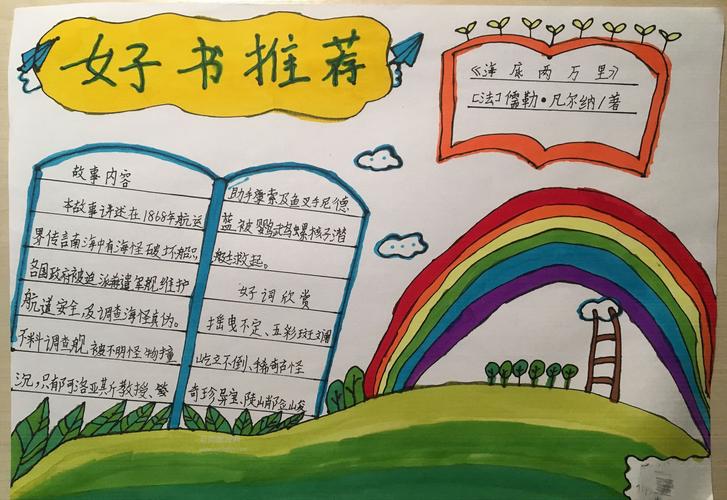 好书推荐
《海底两万里》
[法]儒勒·凡尔纳/著
故事内容
本故事讲述在1868年航运
界传言南海中有海怪破坏船只
各国政府被迫派遣军舰维护
航道安全,及调查海怪真伪。
不料调查舰被不明怪物撞
沉,只有阿洛亚其斤教授、
助手 及鱼叉手尼德
兰被鹦鹉螺核子潜
艇救起。
好词欣赏
摇曳不定、五彩斑斓
屹立不倒、稀奇古怪
奇珍异宝、